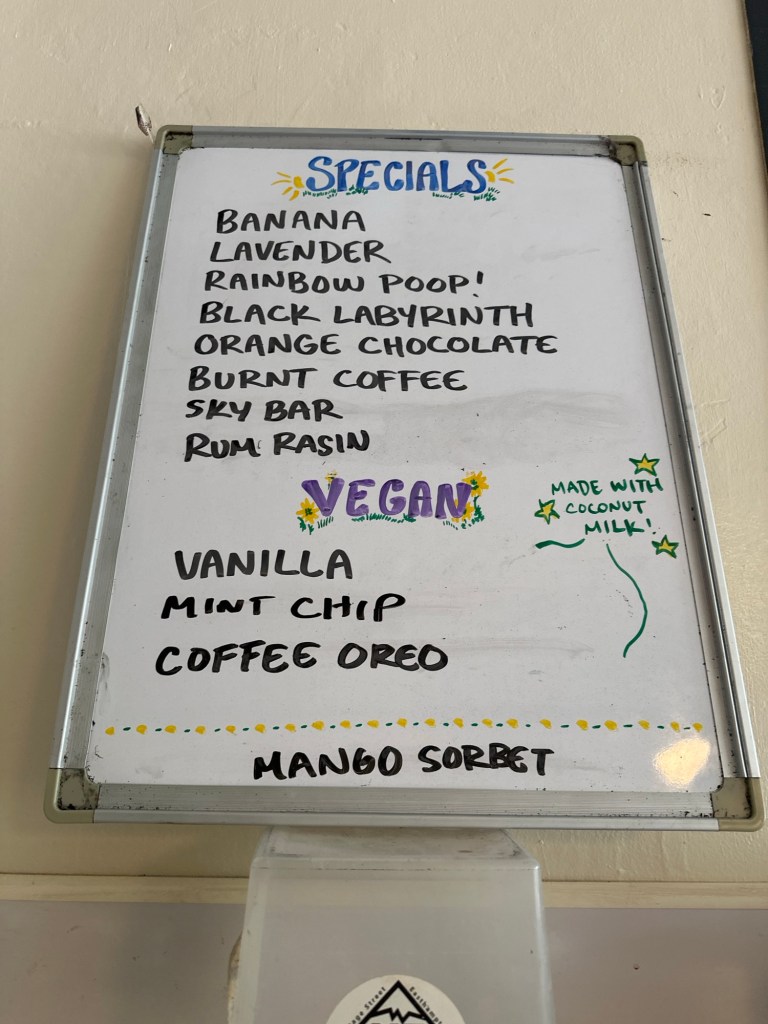 SPECIALS
BANANA
LAVENDER
RAINBOW POOP!
BLACK LABYRINTH
ORANGE CHOCOLATE
BURNT COFFEE
SKY BAR
RUM RASIN
VEGAN
MADE WITH
COCONUT
MILK!
VANILLA
MINT CHIP
COFFEE OREO
MANGO SORBET
Street